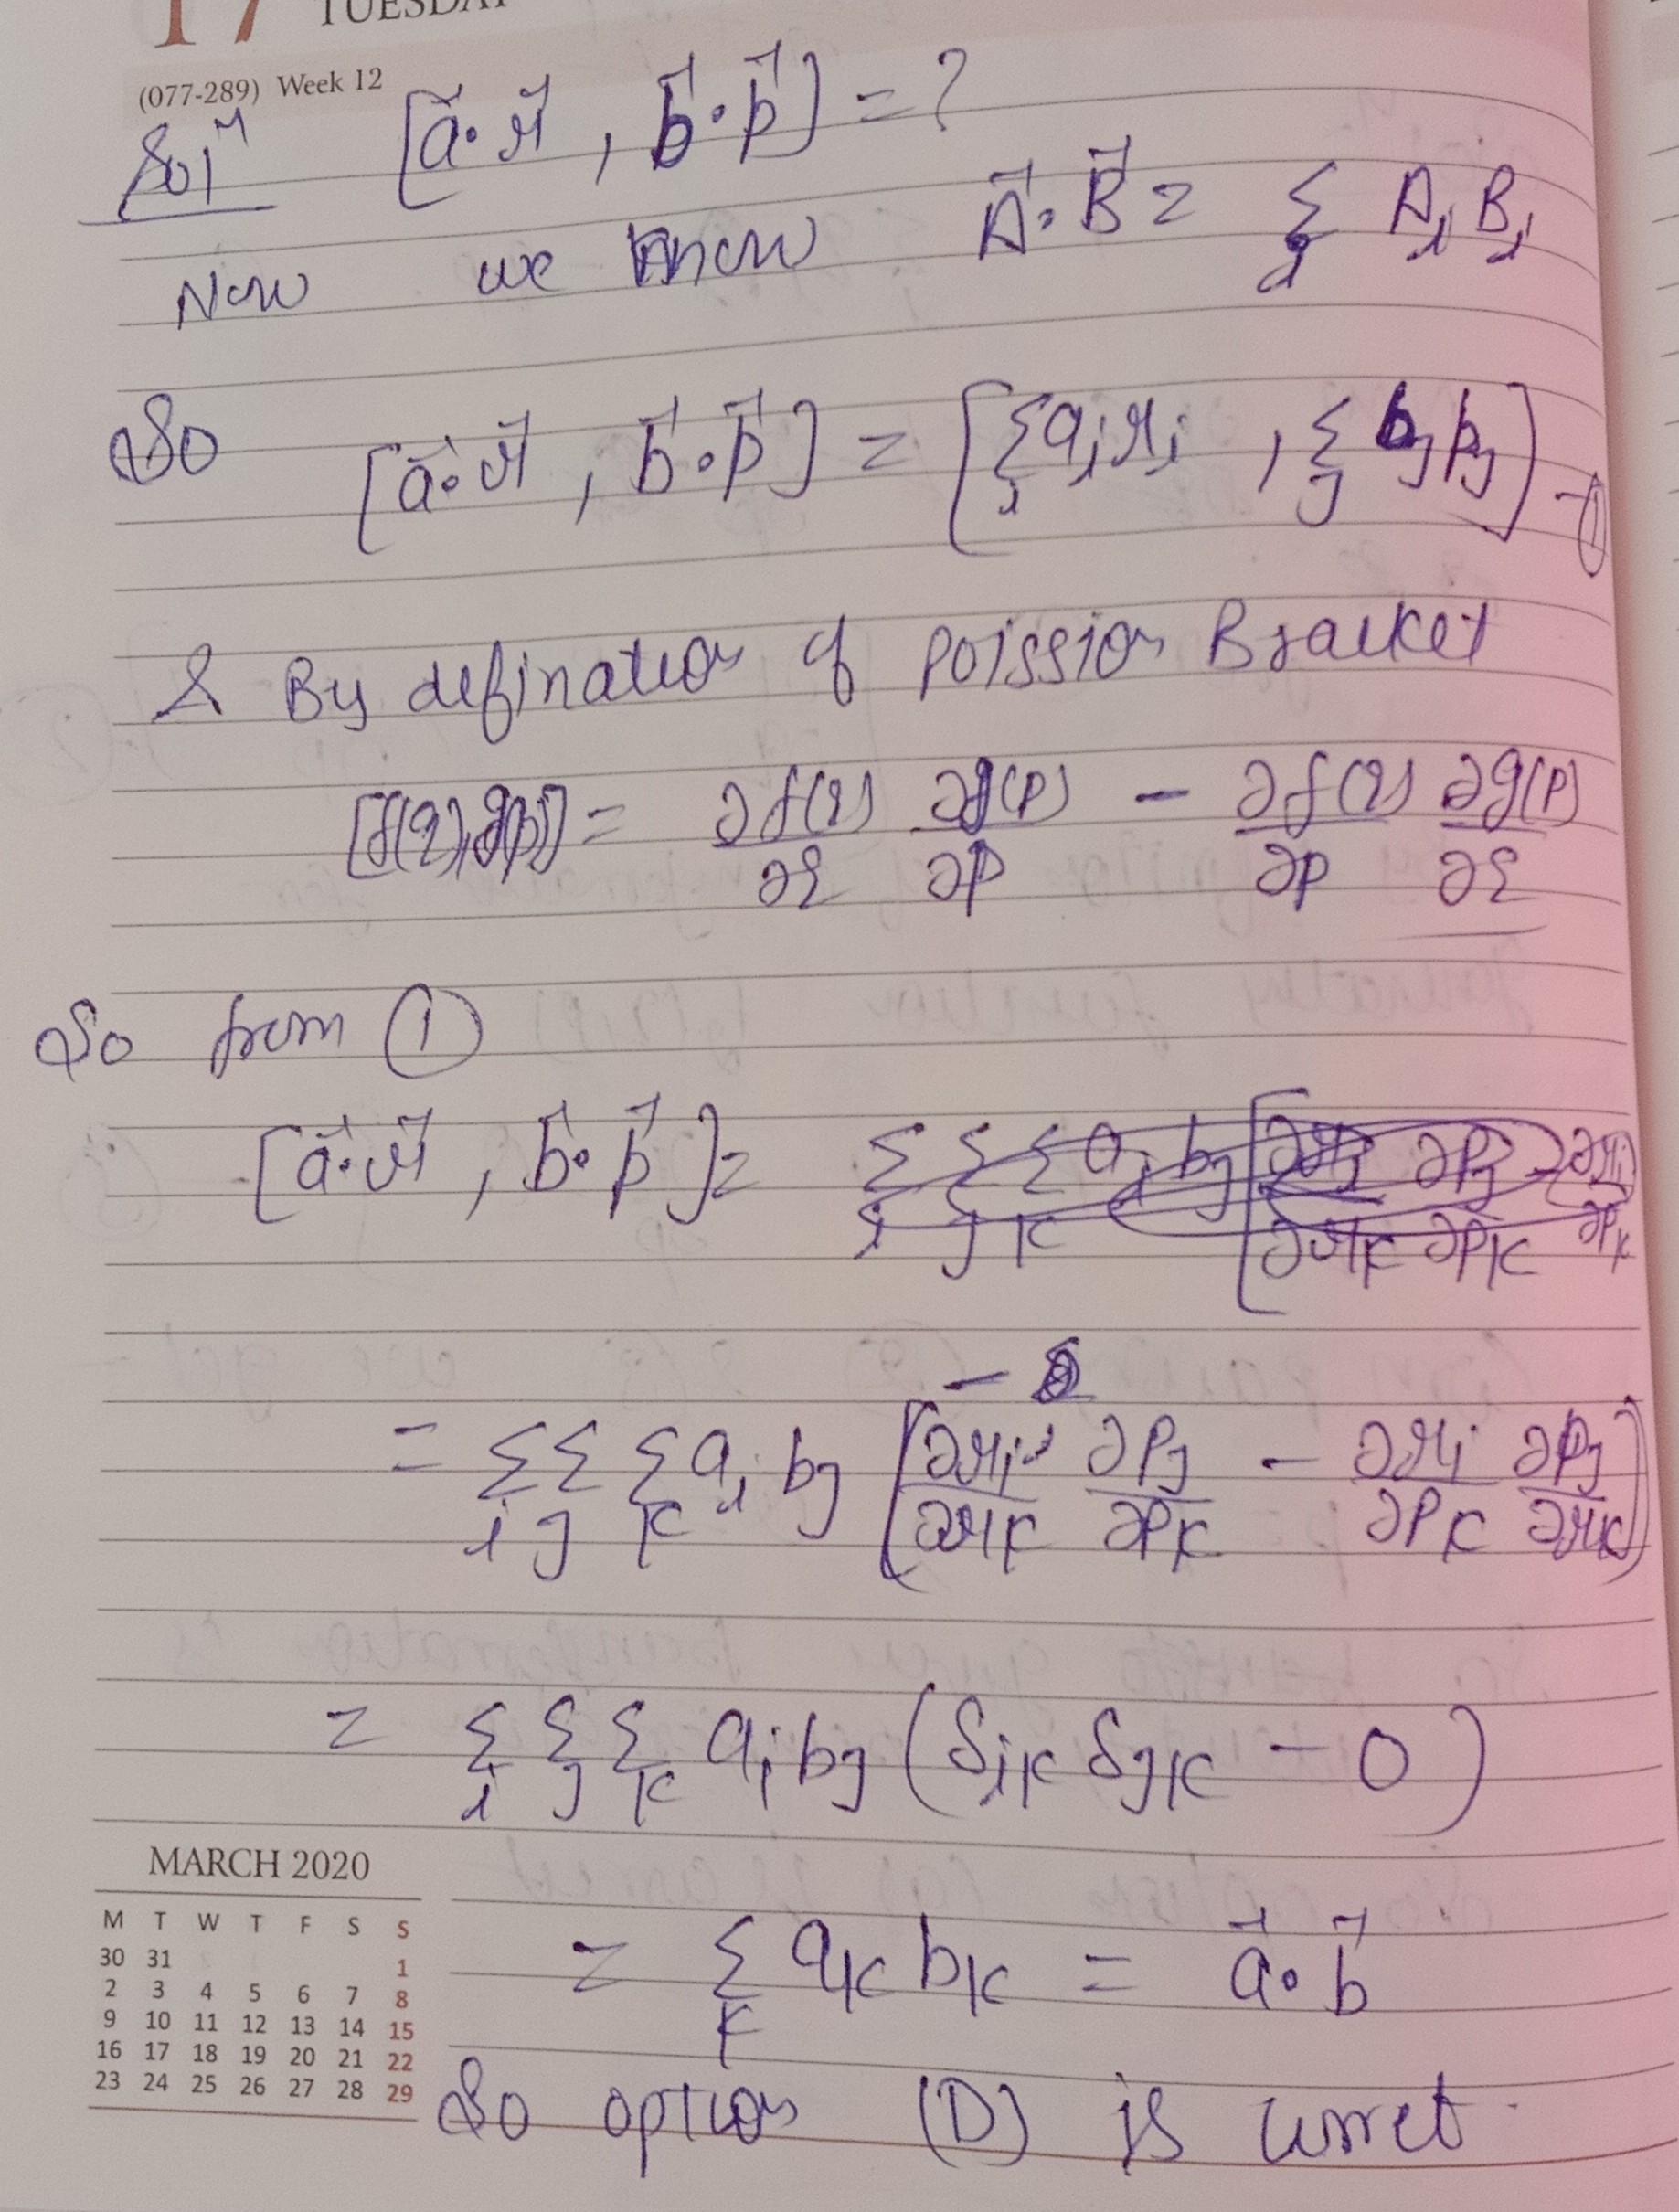 17 TUESDAY
(077-289) Week 12
Solⁿ [a⃗·r⃗ , b⃗·p⃗] = ?
Now we know A⃗·B⃗ = Σ_i A_i B_i
So [a⃗·r⃗ , b⃗·p⃗] = [Σ_i a_i r_i , Σ_j b_j p_j] -①
& By defination of poission Bracket
[f(q), g(p)] = ∂f(q)/∂q ∂g(p)/∂p - ∂f(q)/∂p ∂g(p)/∂q
So from ①
[a⃗·r⃗ , b⃗·p⃗] = Σ_i Σ_j Σ_k a_i b_j [∂r_i/∂r_k ∂p_j/∂p_k - ∂r_i/∂p_k
= Σ_i Σ_j Σ_k a_i b_j [∂r_i/∂r_k ∂p_j/∂p_k - ∂r_i/∂p_k ∂p_j/∂r_k]
= Σ_i Σ_j Σ_k a_i b_j (δ_ik δ_jk - 0)
= Σ_k a_k b_k = a⃗·b⃗
So option (D) is corret.
MARCH 2020
M T W T F S S
30 31 1
2 3 4 5 6 7 8
9 10 11 12 13 14 15
16 17 18 19 20 21 22
23 24 25 26 27 28 29